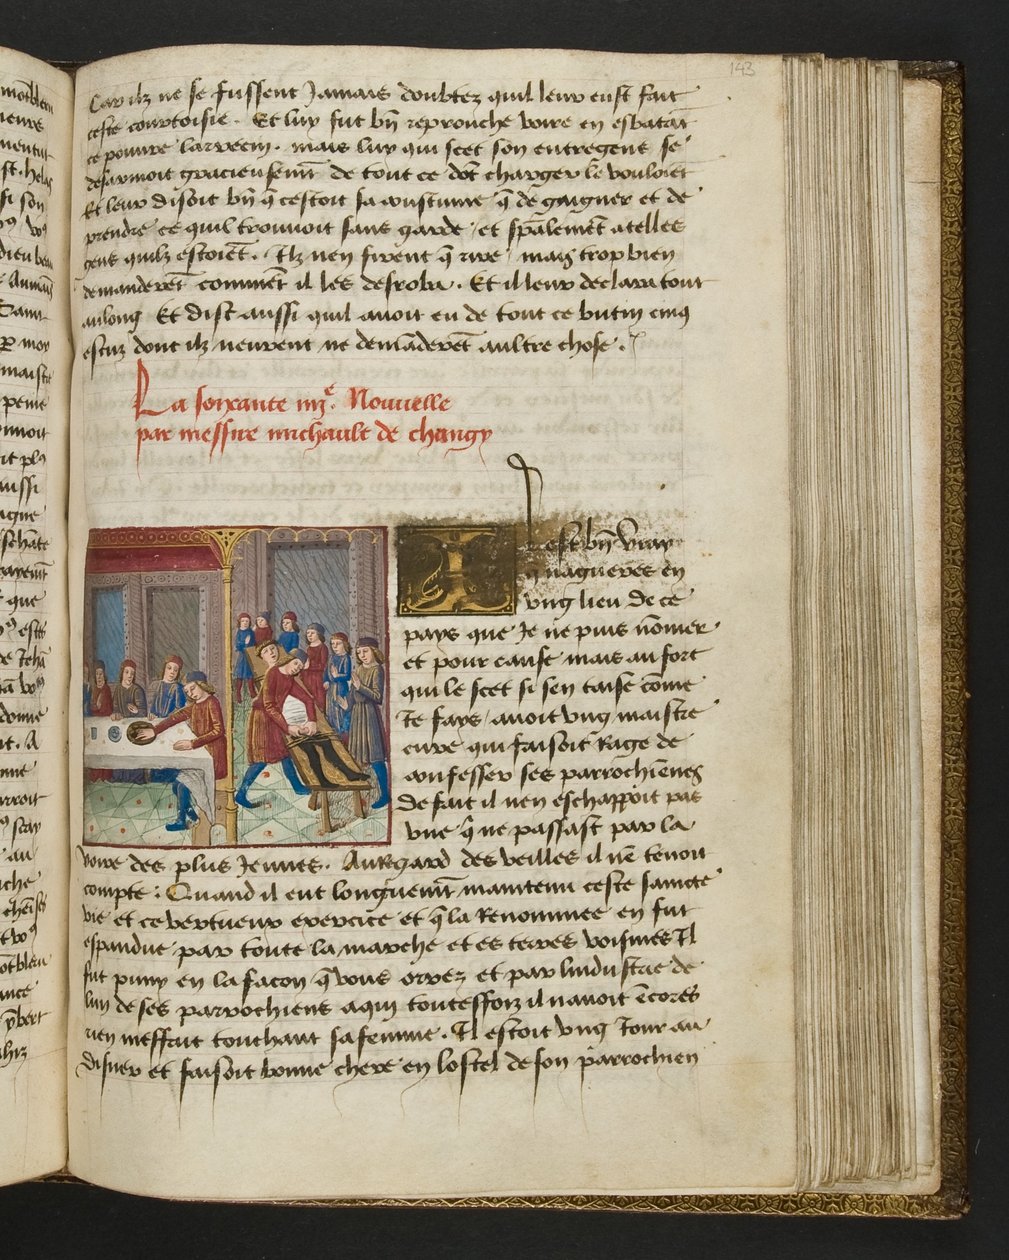 143
Car ilz ne se fussent Jamais doubtez quil leur eust fait
ceste courtoisie. Et luy fut bñ reprouche voire en esbatāt
ce pouure larrecin. mais luy qui scet son entregent se
desarmoit gracieusemẽt de tout ce dõt charger le vouloiẽt
Et leur disoit bñ q̃ cestoit sa coustume q̃ de gaigner et de
prendre ce quil trouuoit sans garde et sp̃alemẽt a telles
gens quilz estoiẽt. Ilz nen firent q̃ rire mais trop bien
demanderẽt commẽt il les desroba. Et il leur declara tout
au long Et dist aussi quil auoit eu de tout ce butin cinq
escuz dont ilz neurent ne demãderẽt aultre chose.
La soixante iiijᵉ. Nouuelle
par messire michault de changy
Il est bñ vray
q̃ nagueres en
vng lieu de ce
pays que Je ne puis nõmer
et pour cause mais au fort
qui le scet si sen taise cõme
Je fays auoit vng maistre
cure qui faisoit Rage de
confesser ses parrochiẽnes
De fait il nen eschappoit pas
vne q̃ ne passast par la
voire des plus Jeunes. Au Regard des veilles il nẽ tenoit
compte: Quand il eut longuemẽt maintenu ceste saincte
vie et ce vertueux exercice et q̃ la Renommee en fut
espandue par toute la marche et es terres voisines Il
fut puny en la facon q̃ vous orrez et par lindustrie de
lun de ses parrochiens a qui touteffoiz il nauoit ẽcores
rien meffait touchant sa femme. Il estoit vng Jour au
disner et faisoit bonne chere en lostel de son parrochien